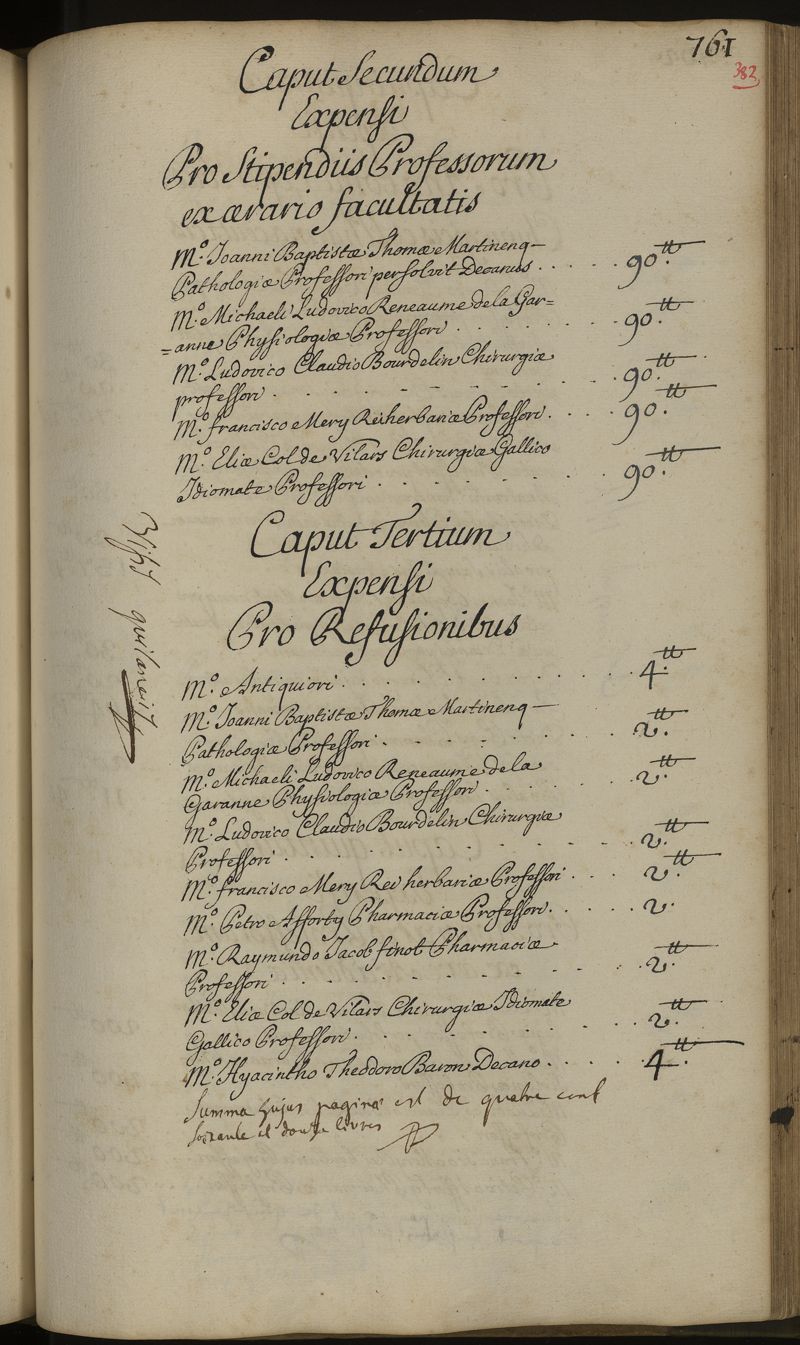 761
382
Caput Secundum
Expensi
Pro Stipendiis Professorum
ex ærario facultatis
M.º Joanni Baptistæ Thomæ Martinenq —
Pathologiæ Professori persolvit Decanus . . . . . 90.tt
M.º Michaeli Ludovico Reneaume de la Gar=
=anne Physiologiæ Professori . . . . . . 90.tt
M.º Ludovico Claudio Bourdelin Chirurgiæ
professori . . . . . . . . 90.tt
M.º francisco Mery Rei herbariæ Professori . . . . 90.tt
M.º Eliæ Col de Vilars Chirurgiæ Gallico
Idiomate Professori . . . . . . . 90.tt
Caput Tertium
Expensi
Pro Refusionibus
M.º Antiquiori . . . . . . . . . 4.tt
M.º Joanni Baptistæ Thomæ Martinenq —
Pathologiæ Professori . . . . . . . 2.tt
M.º Michaeli Ludovico Reneaume de la
Garanne Physiologiæ Professori . . . . . 2.tt
M.º Ludovico Claudio Bourdelin Chirurgiæ
Professori . . . . . . . . . 2.tt
M.º francisco Mery Rei herbariæ Professori . . . 2.tt
M.º Petro Afforty Pharmaciæ Professori . . . . . 2.
M.º Raymundo Jacob finot Pharmaciæ
Professori . . . . . . . . . 2.tt
M.º Eliæ Col de Vilars Chirurgiæ Idiomate
Gallico Professori . . . . . . . . 2.tt
M.º Hyacintho Theodoro Baron Decano . . . . . 4.tt
Summa hujus paginæ est de quatre cent
soixante et douze livres